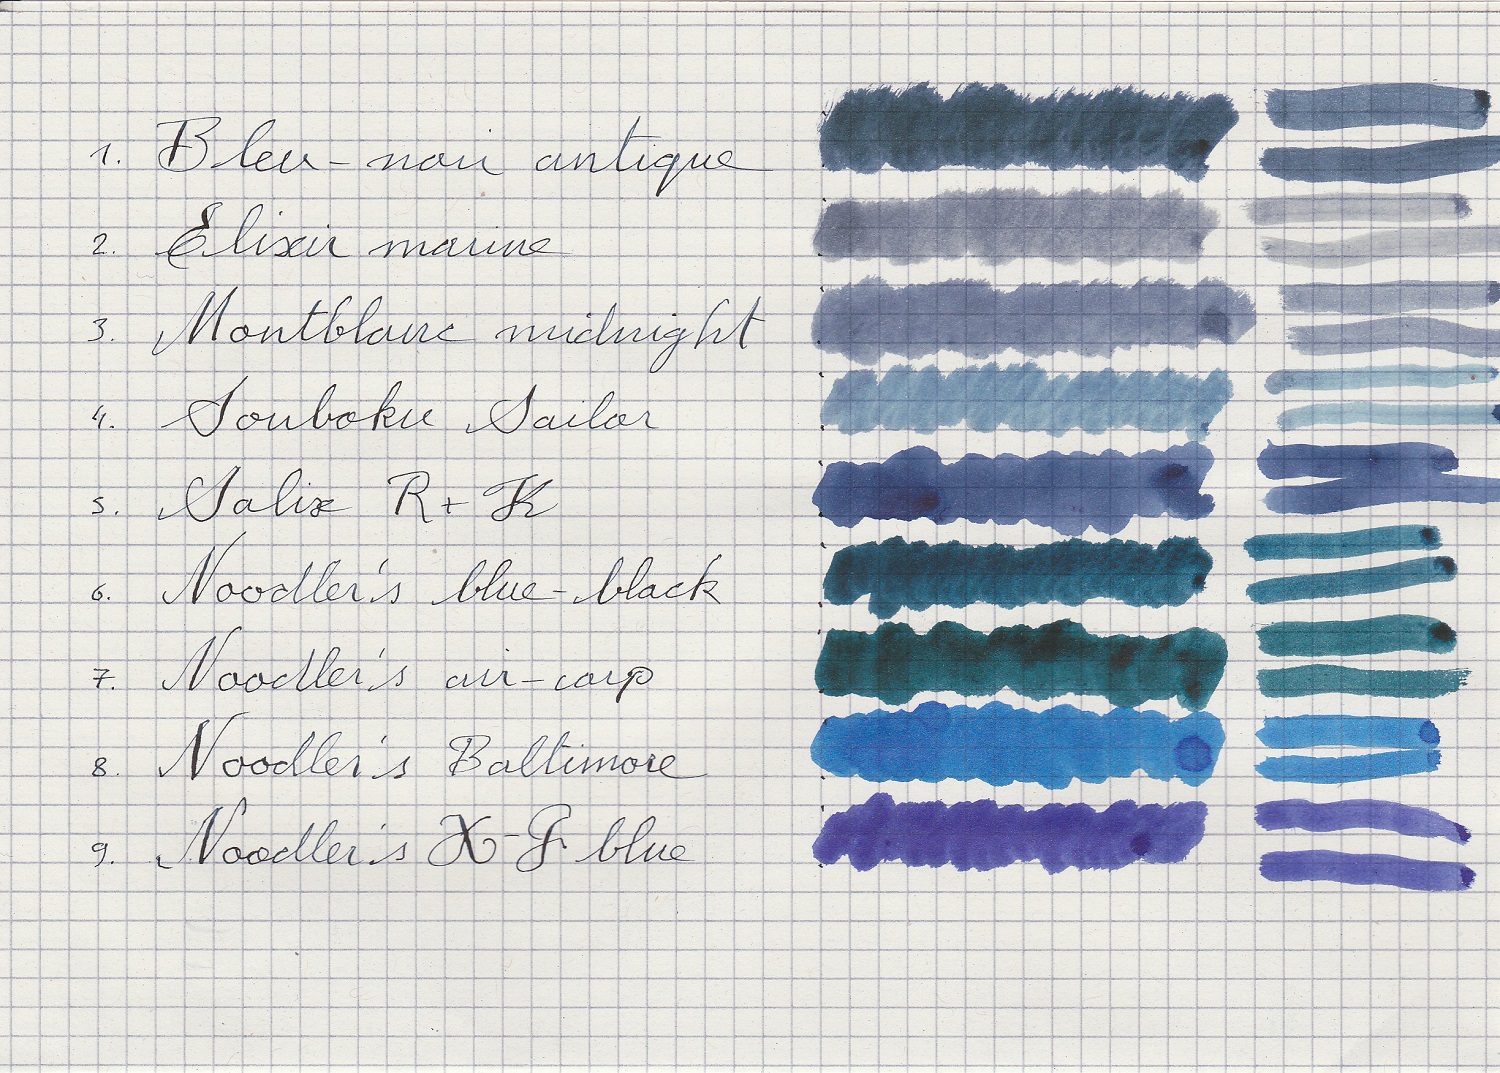 1. Bleu-noir antique
2. Elixir marine
3. Montblanc midnight
4. Souboku Sailor
5. Salix R+K
6. Noodler's blue-black
7. Noodler's air-corp
8. Noodler's Baltimore
9. Noodler's X-F blue